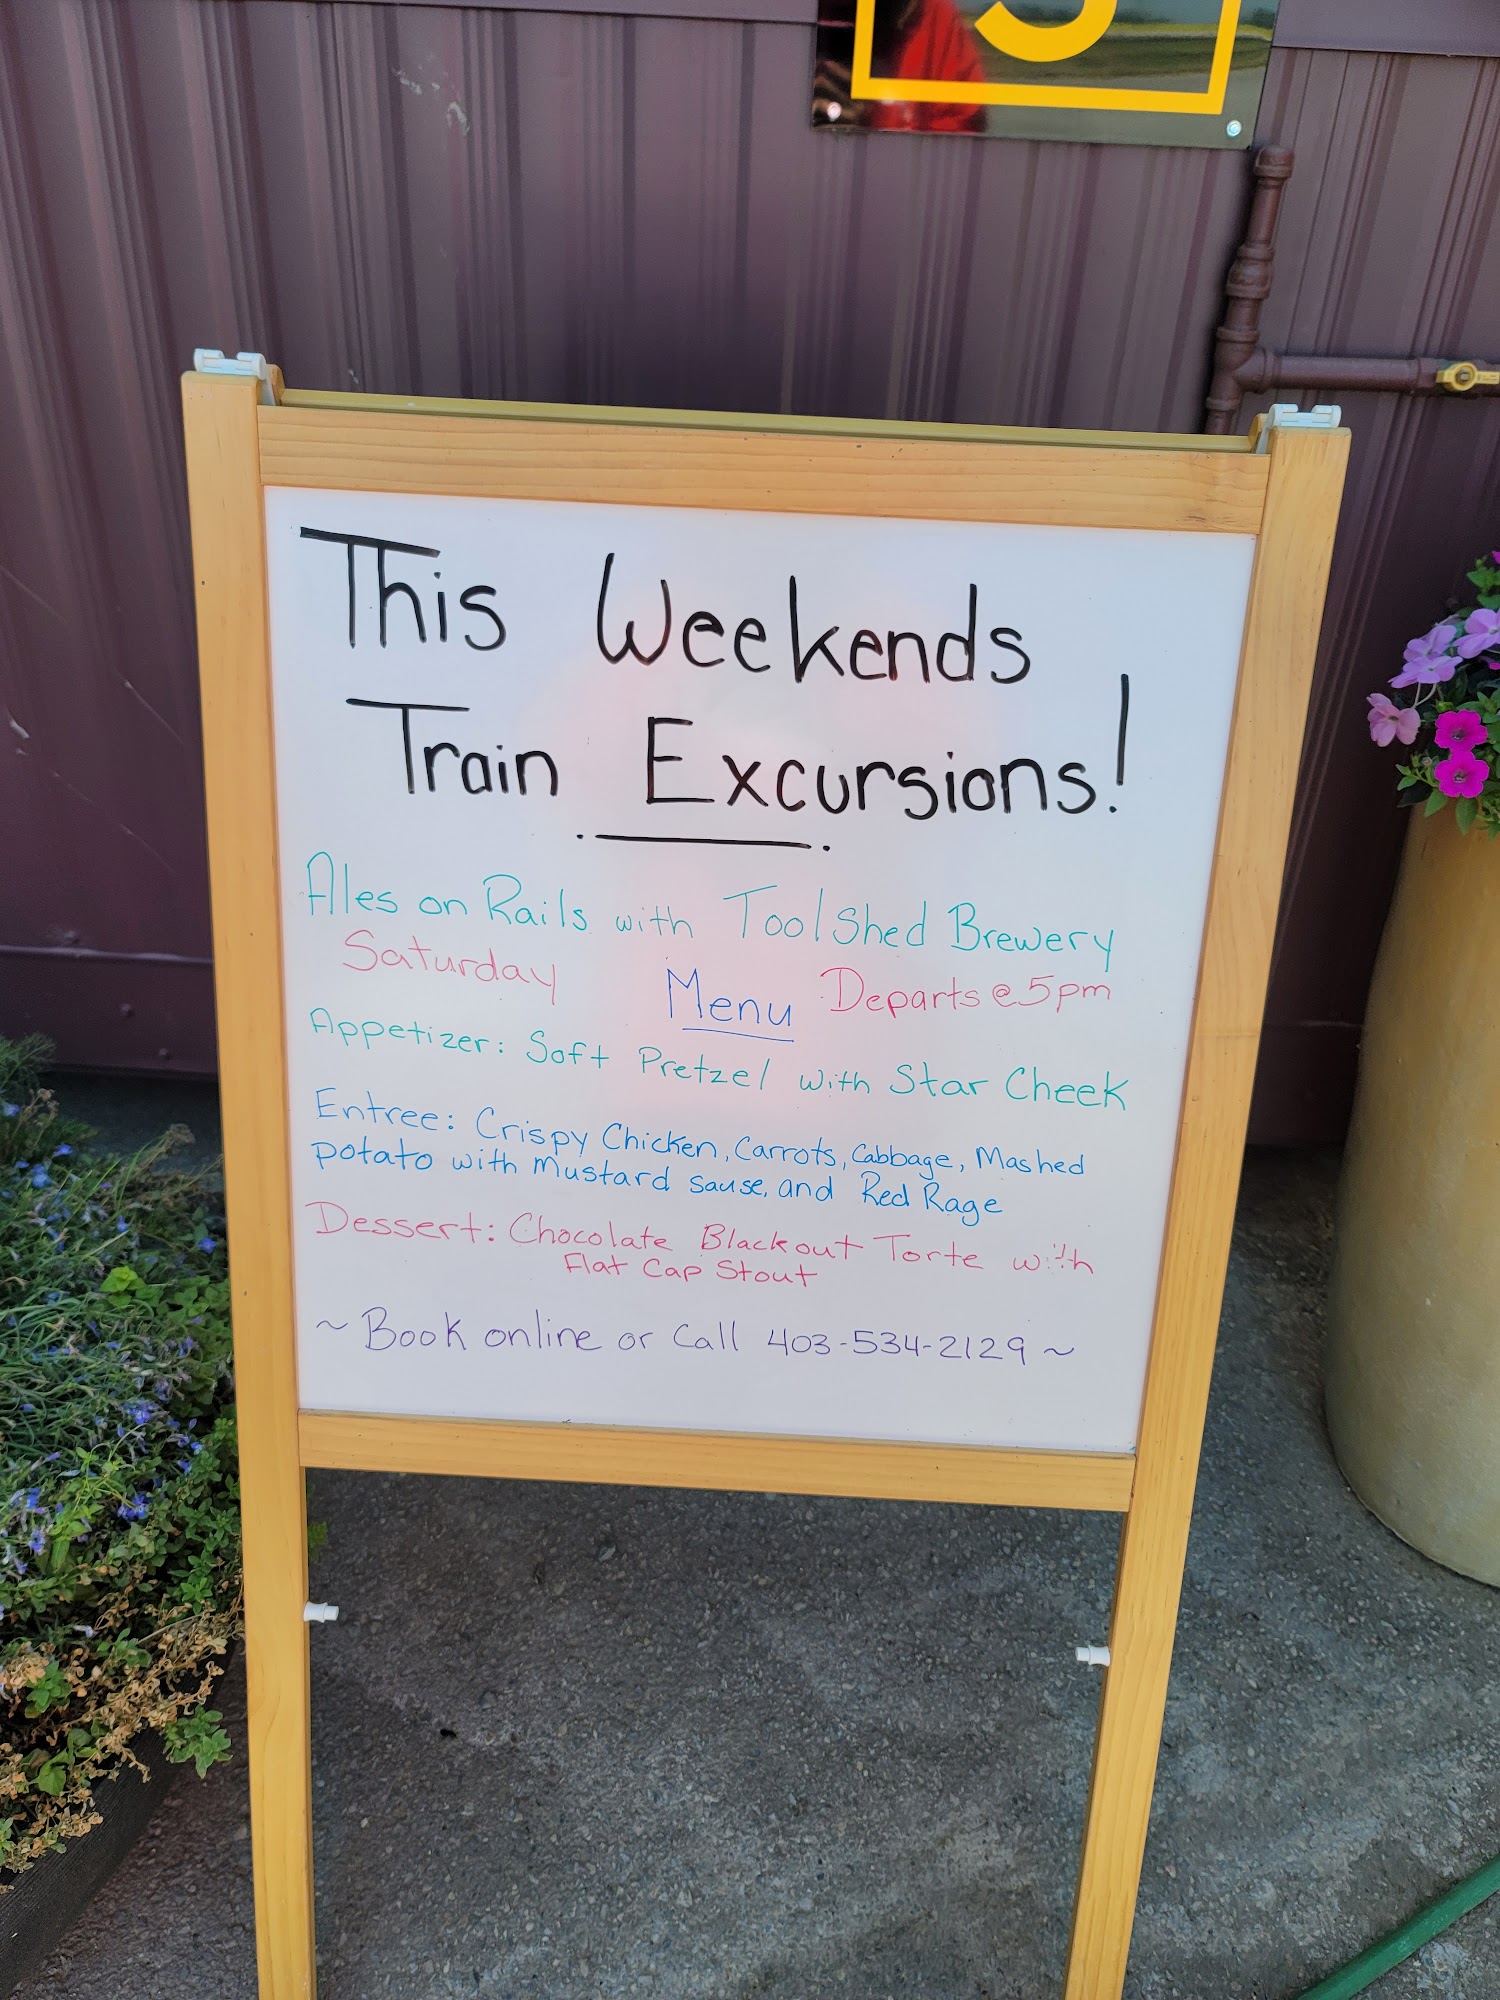 This Weekends
Train Excursions!
Ales on Rails with Tool Shed Brewery
Saturday Menu Departs @ 5pm
Appetizer: Soft Pretzel with Star Cheek
Entree: Crispy Chicken, Carrots, Cabbage, Mashed
potato with mustard sause, and Red Rage
Dessert: Chocolate Blackout Torte with
Flat Cap Stout
~ Book online or call 403-534-2129 ~